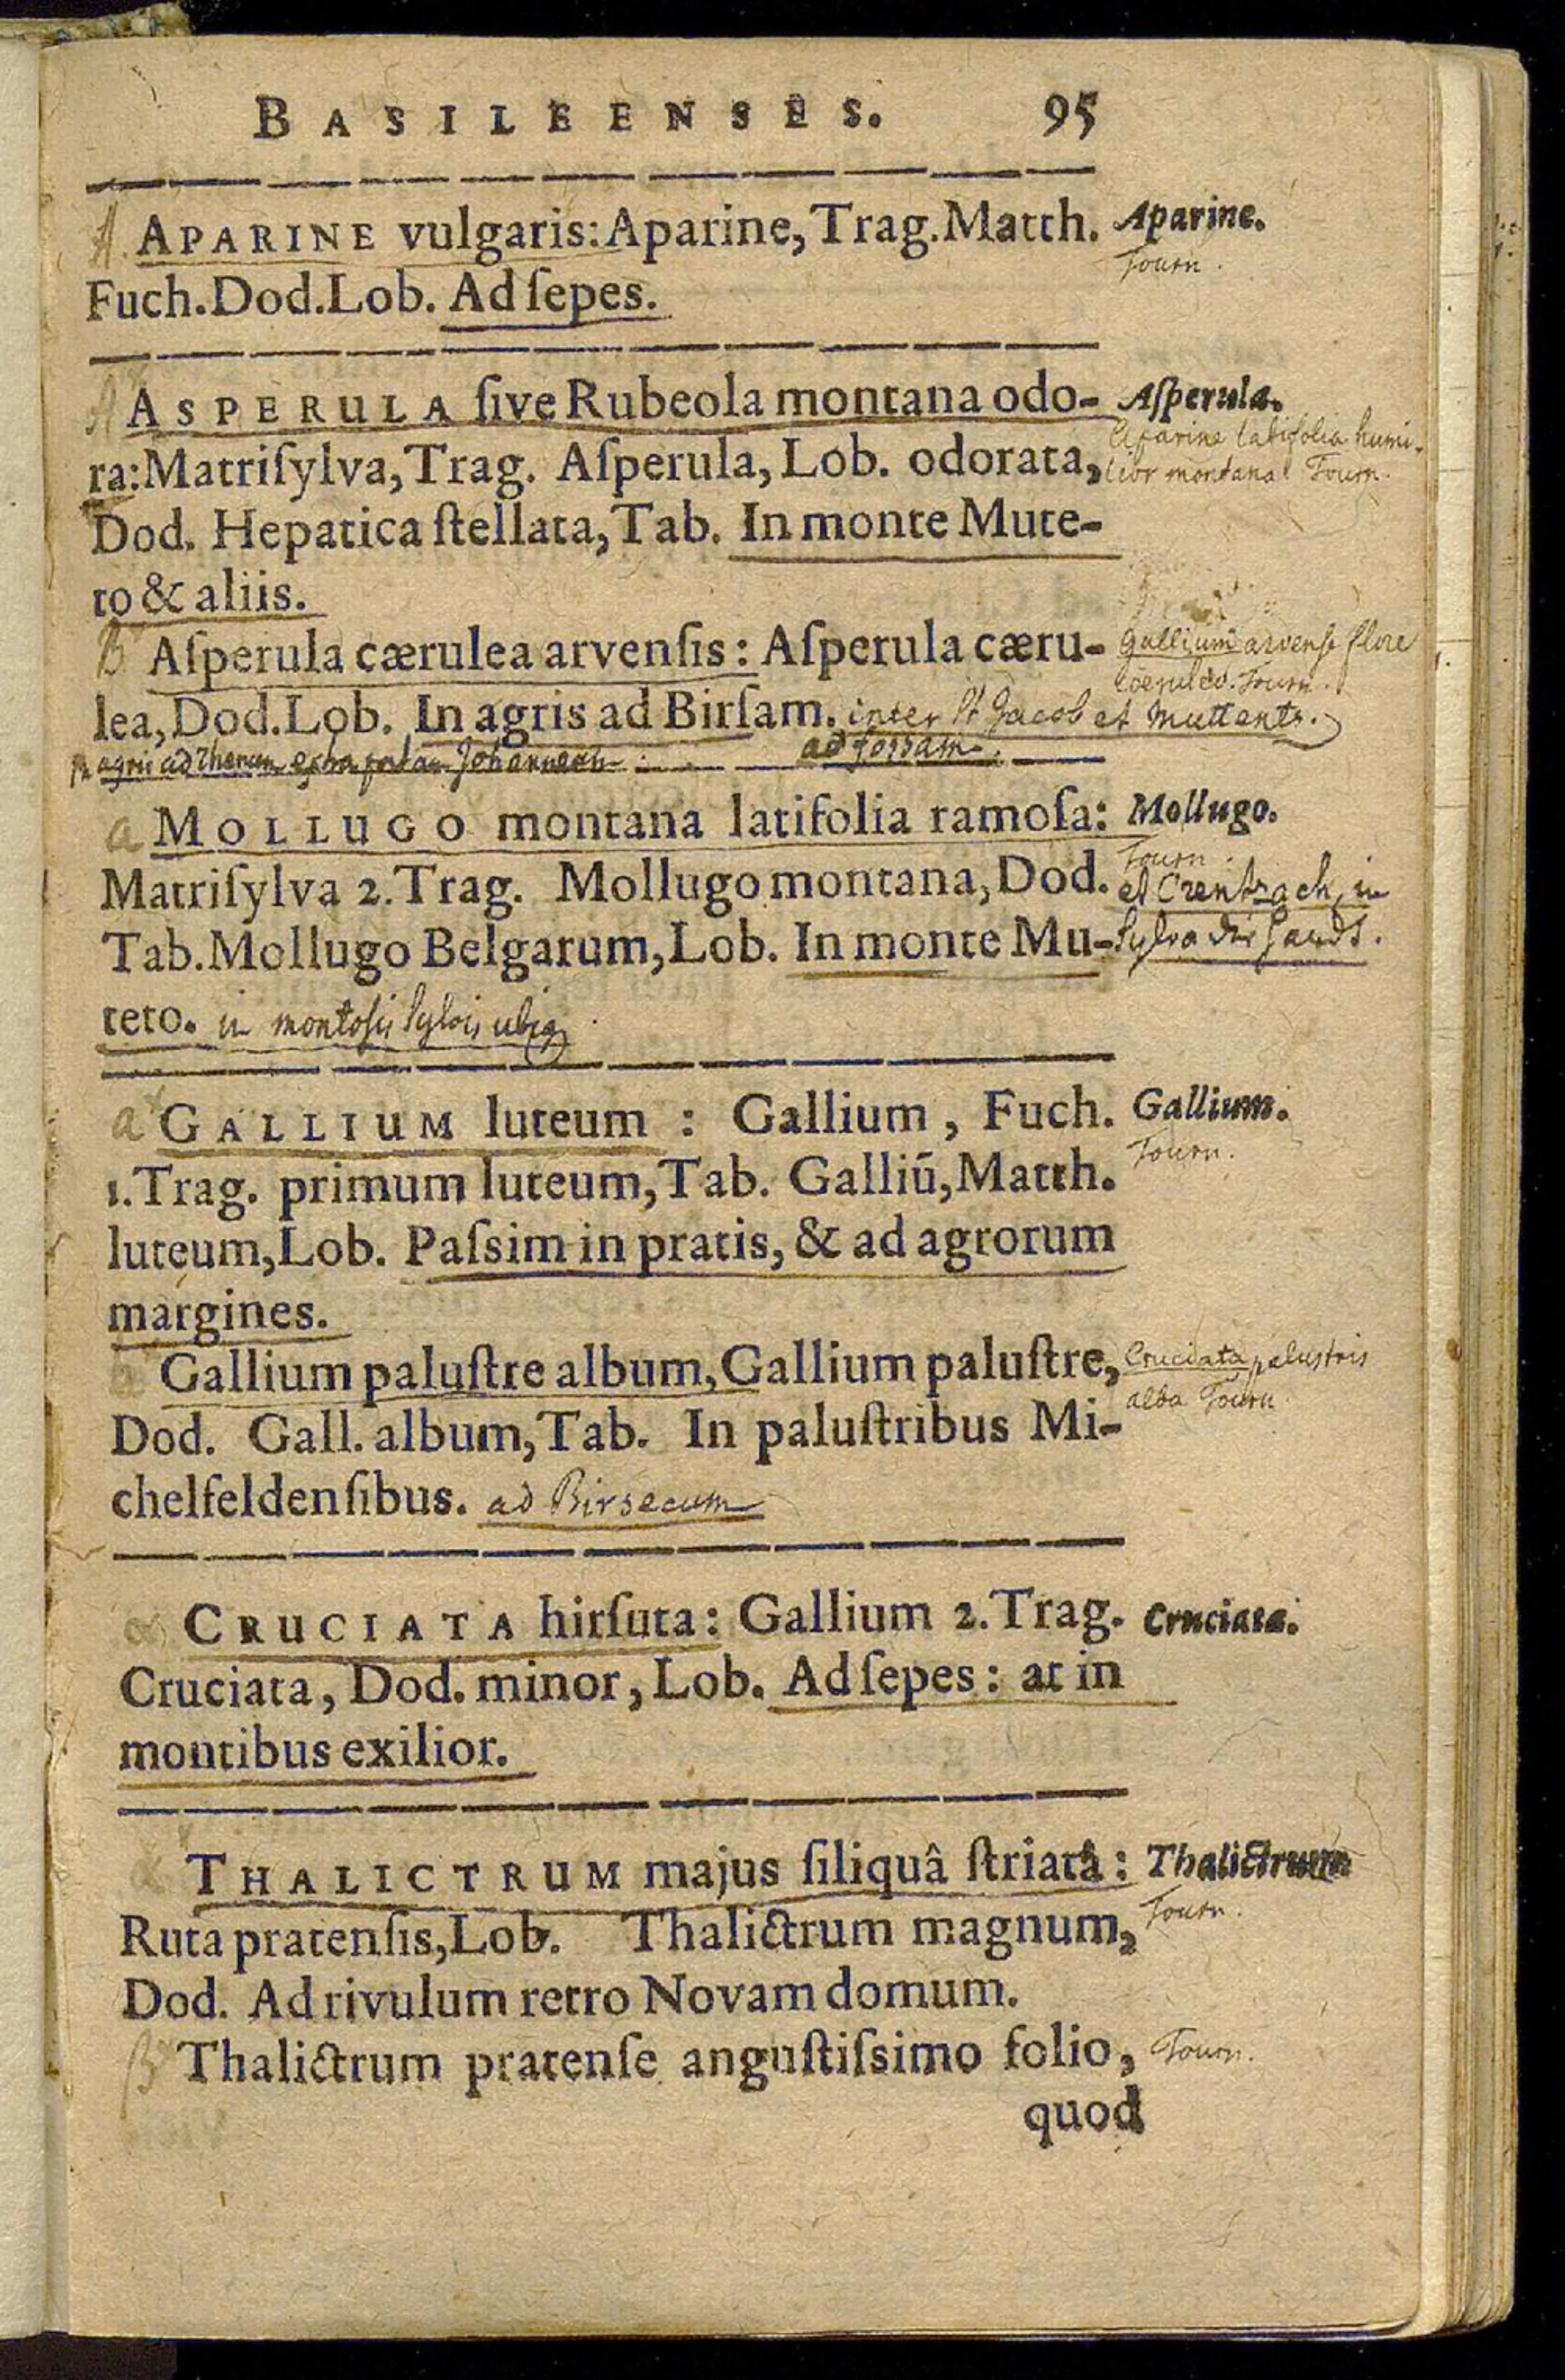 BASILEENSES. 95
A. APARINE vulgaris: Aparine, Trag. Matth. Aparine.
Tourn.
Fuch. Dod. Lob. Ad ſepes.
A ASPERULA ſive Rubeola montana odo- Aſperula.
Aparine latifolia humi-
ra: Matriſylva, Trag. Aſperula, Lob. odorata, lior montana Tourn.
Dod. Hepatica ſtellata, Tab. In monte Mute-
to & aliis.
B Aſperula cærulea arvenſis: Aſperula cæru- Gallium arvense flore
coeruleo. Tourn.
lea, Dod. Lob. In agris ad Birſam. inter St Jacob et Muttents.
In agris ad Rhenum extra portam Johannem ad fossam.
a MOLLUGO montana latifolia ramoſa: Mollugo.
Tourn.
Matriſylva 2. Trag. Mollugo montana, Dod. et Crentzach, in
Tab. Mollugo Belgarum, Lob. In monte Mu- Sylva
teto. in montosis Sylvis ubiq
a GALLIUM luteum : Gallium, Fuch. Gallium.
Tourn.
1. Trag. primum luteum, Tab. Galliū, Matth.
luteum, Lob. Paſsim in pratis, & ad agrorum
margines.
Gallium paluſtre album, Gallium paluſtre, Cruciata palustris
alba Tourn
Dod. Gall. album, Tab. In paluſtribus Mi-
chelfeldenſibus. ad Birsecum
α CRUCIATA hirſuta: Gallium 2. Trag. Cruciata.
Cruciata, Dod. minor, Lob. Ad ſepes: at in
montibus exilior.
THALICTRUM majus ſiliquâ ſtriatâ: Thalictrum
Tourn.
Ruta pratenſis, Lob. Thalictrum magnum,
Dod. Ad rivulum retro Novam domum.
β Thalictrum pratenſe anguſtiſsimo folio, Tourn.
quod